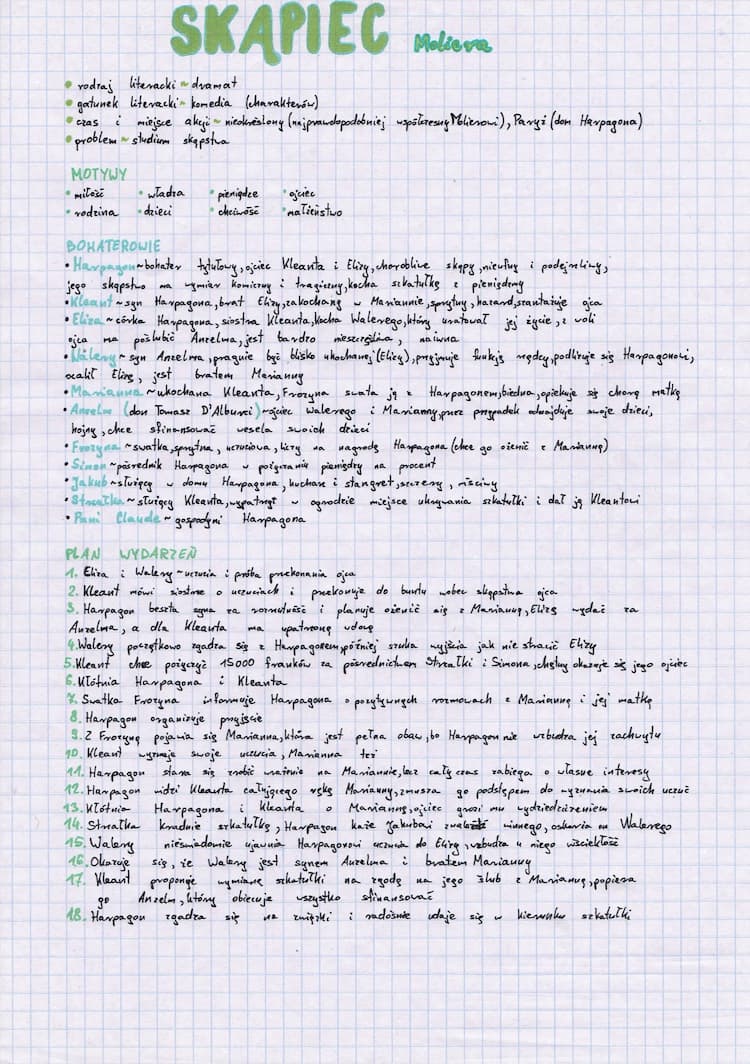 SKĄPIEC Moliera
• rodzaj literacki ~ dramat
• gatunek literacki ~ komedia (charakterów)
• czas i miejsce akcji ~ nieokreślony (najprawdopodobniej współczesny Molierowi), Paryż (dom Harpagona)
• problem ~ studium skąpstwa
MOTYWY
• miłość • władza • pieniądze • ojciec
• rodzina • dzieci • chciwość • małżeństwo
BOHATEROWIE
• Harpagon ~ bohater tytułowy, ojciec Kleanta i Elizy, chorobliwe skąpy, nieufny i podejrzliwy,
jego skąpstwo ma wymiar komiczny i tragiczny, kocha szkatułkę z pieniędzmi
• Kleant ~ syn Harpagona, brat Elizy, zakochany w Mariannie, sprytny, hazard, szantażuje ojca
• Eliza ~ córka Harpagona, siostra Kleanta, kocha Walerego, który uratował jej życie, z woli
ojca ma poślubić Anzelma, jest bardzo nieszczęśliwa, naiwna
• Walery ~ syn Anzelma, pragnie być blisko ukochanej (Elizy), przyjmuje funkcję rządcy, podlizuje się Harpagonowi,
ocalił Elizę, jest bratem Marianny
• Marianna ~ ukochana Kleanta, Frozyna swata ją z Harpagonem, biedna, opiekuje się chorą matką
• Anzelm (don Tomasz D'Alburci) ~ ojciec Walerego i Marianny, przez przypadek odnajduje swoje dzieci,
hojny, chce sfinansować wesela swoich dzieci
• Frozyna ~ swatka, sprytna, uczuciowa, liczy na nagrodę Harpagona (chce go ożenić z Marianną)
• Simon ~ pośrednik Harpagona w pożyczaniu pieniędzy na procent
• Jakub ~ służący w domu Harpagona, kucharz i stangret, szczery, mściwy
• Strzałka ~ służący Kleanta, wypatrzył w ogrodzie miejsce ukrywania szkatułki i dał ją Kleantowi
• Pani Claude ~ gospodyni Harpagona
PLAN WYDARZEŃ
1. Eliza i Walery ~ uczucia i próba przekonania ojca
2. Kleant mówi siostrze o uczuciach i przekonuje do buntu wobec skąpstwa ojca
3. Harpagon beszta syna za rozrzutność i planuje ożenić się z Marianną, Elizę wydać za
Anzelma, a dla Kleanta ma upatrzoną wdowę
4. Walery początkowo zgadza się z Harpagonem, później szuka wyjścia jak nie stracić Elizy
5. Kleant chce pożyczyć 15000 franków za pośrednictwem Strzałki i Simona, chętny okazuje się jego ojciec
6. Kłótnia Harpagona i Kleanta
7. Swatka Frozyna informuje Harpagona o pozytywnych rozmowach z Marianną i jej matką
8. Harpagon organizuje przyjęcie
9. Z Frozyną pojawia się Marianna, która jest pełna obaw, bo Harpagon nie wzbudza jej zachwytu
10. Kleant wyznaje swoje uczucia, Marianna też
11. Harpagon stara się zrobić wrażenie na Mariannie, lecz cały czas zabiega o własne interesy
12. Harpagon widzi Kleanta całującego rękę Marianny, zmusza go podstępem do wyznania swoich uczuć
13. Kłótnia Harpagona i Kleanta o Mariannę, ojciec grozi mu wydziedziczeniem
14. Strzałka kradnie szkatułkę, Harpagon każe Jakubowi znaleźć winnego, oskarża on Walerego
15. Walery nieświadomie ujawnia Harpagonowi uczucia do Elizy, wzbudza u niego wściekłość
16. Okazuje się, że Walery jest synem Anzelma i bratem Marianny
17. Kleant proponuje wymianę szkatułki na zgodę na jego ślub z Marianną, popiera
go Anzelm, który obiecuje wszystko sfinansować
18. Harpagon zgadza się na związki i radośnie udaje się w kierunku szkatułki